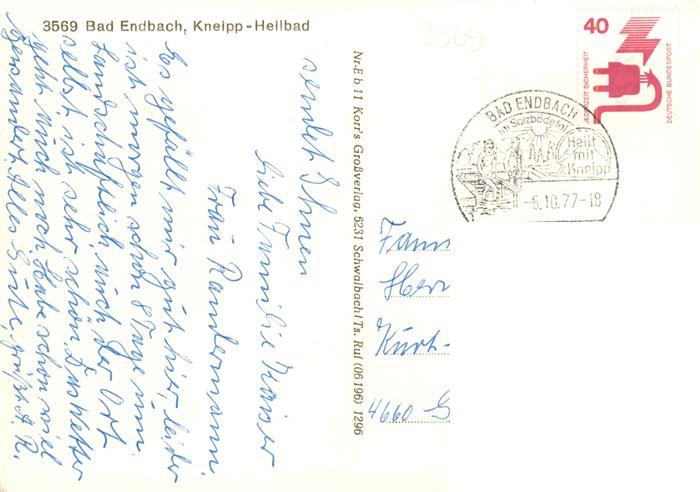 3569 Bad Endbach, Kneipp-Heilbad
sendet Ihnen
liebe Familie Kaiser
Frau Randermann.
Es gefällt mir gut hier, leider
ist morgen schon 8 Tage um.
Landschaftlich, auch der Ort
selbst ist sehr schön. Das Wetter
geht auch noch. Habe schon viel
gewandert. Alles Gute, grüßt A. R.
Nr. E b 11 Korr's Großverlag, 6231 Schwalbach/Ts. Ruf (06196) 1296
3569
40
JEDERZEIT SICHERHEIT
DEUTSCHE BUNDESPOST
BAD ENDBACH
im Salzbödetal
Heilt
mit
Kneipp
-5.10.77-18
Fam
Herr
Kurt-
4660 G